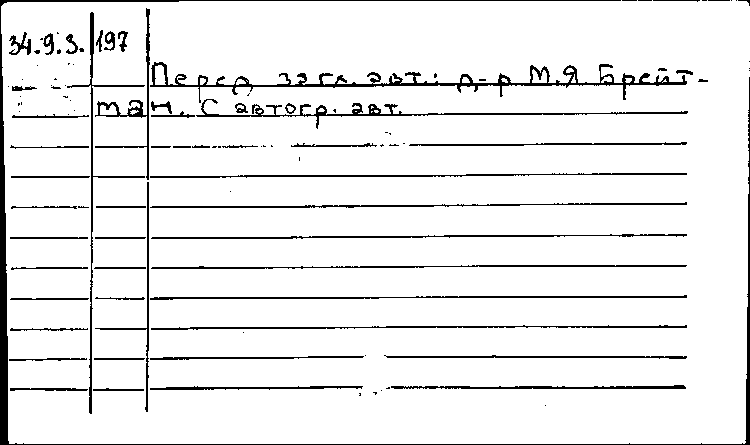 34.9.3. 197
Перед загл. авт.: д-р М.Я Брейт-
ман. С автогр. авт.